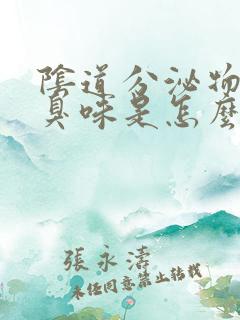 陰道分泌物
臭味是怎麼
張永濤
未經同意禁止轉載